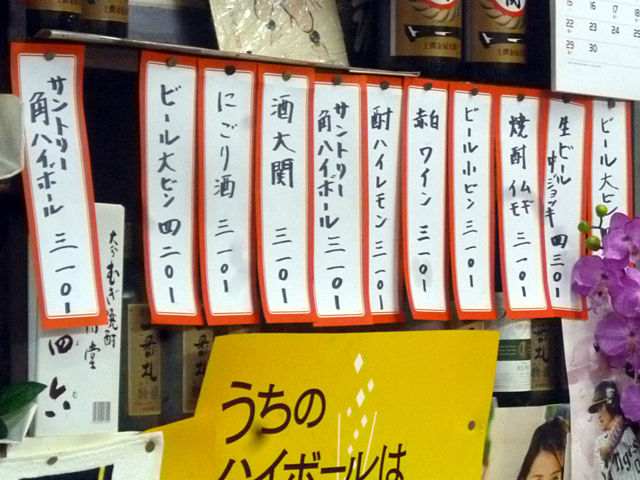 サントリー
角ハイボール 三一〇〡
ビール大ビン 四二〇〡
にごり酒 三一〇〡
酒大関 三一〇〡
サントリー
角ハイボール 三一〇〡
酎ハイレモン 三一〇〡
赤白ワイン 三一〇〡
ビール小ビン 三一〇〡
焼酎 イモ ムギ 三一〇〡
生ビール
中ジョッキ 四三〇〡
ビール大ビ
むぎ焼酎
うちの
ハイボールは
15
16
17
22
23
24
29
30